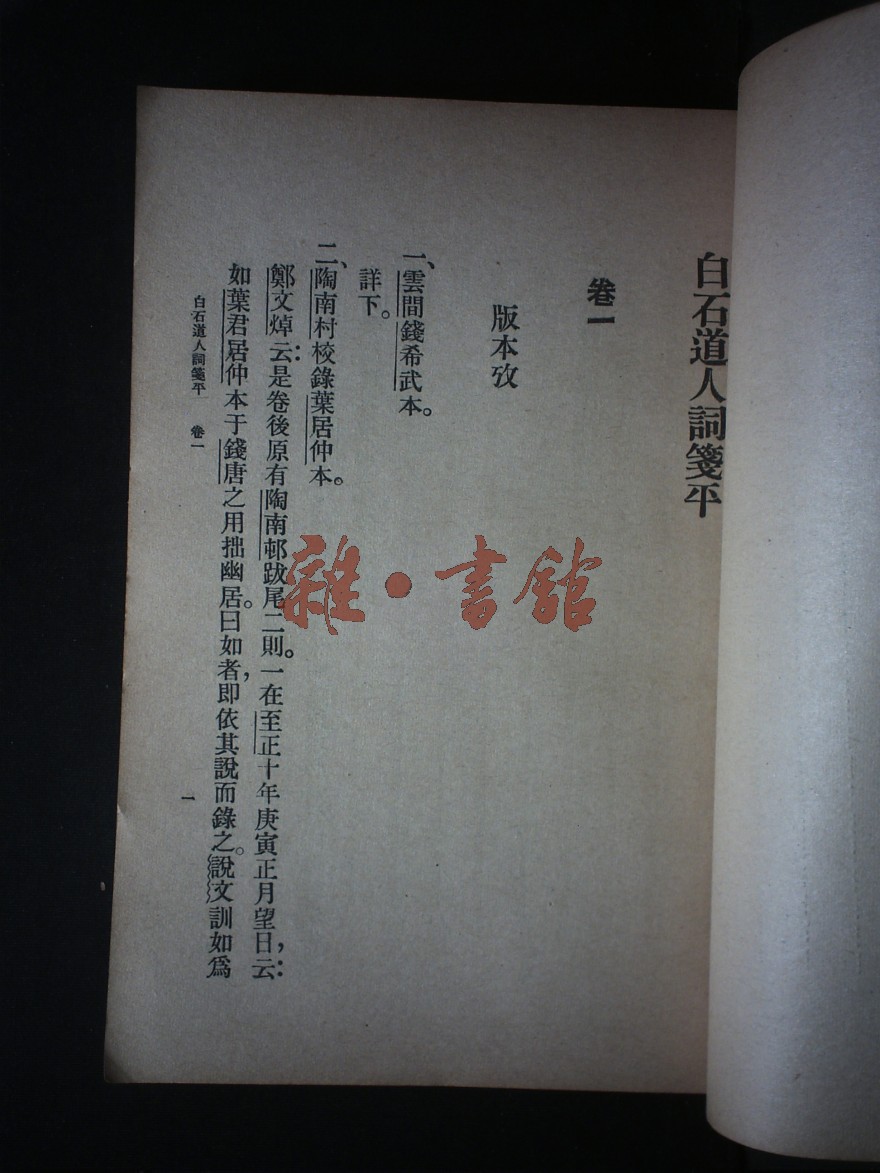 白石道人詞箋平
卷一
版本攷
一、雲間錢希武本。
詳下。
二、陶南村校錄葉居仲本。
鄭文焯云：是卷後原有陶南邨跋尾二則。一在至正十年庚寅正月望日，云：
如葉君居仲本于錢唐之用拙幽居。曰如者，即依其說而錄之。說文訓如爲
白石道人詞箋平　卷一
一
雜·書館